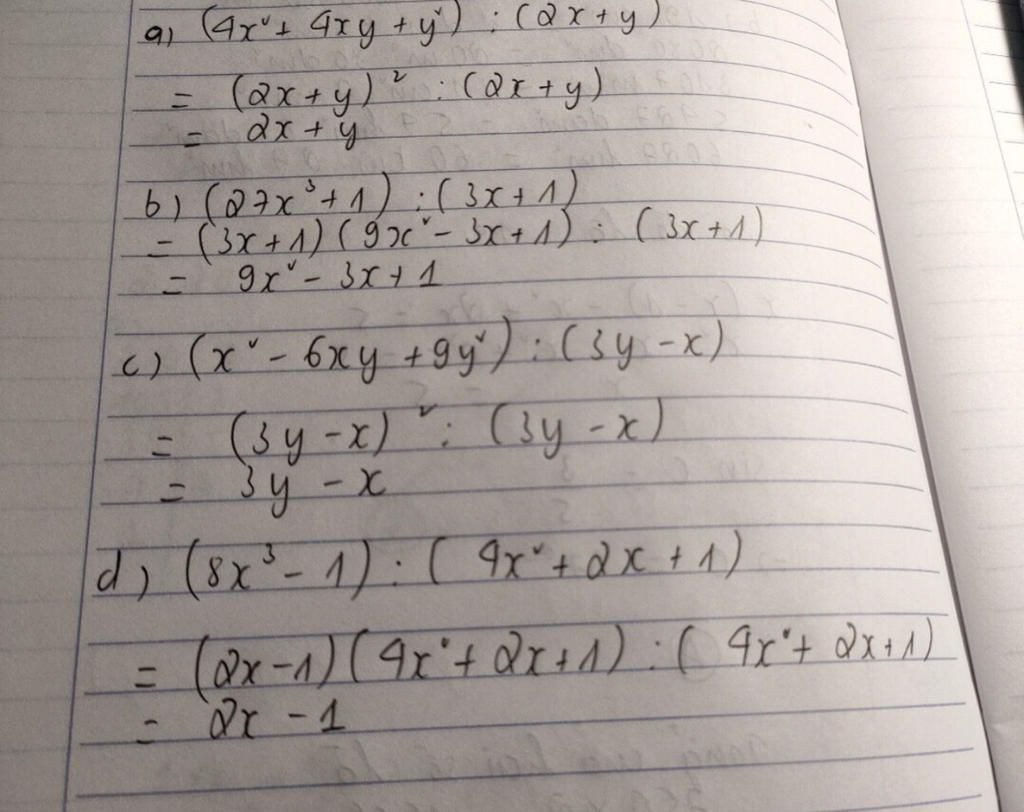 a) (4x² + 4xy + y²) : (2x + y)
= (2x + y)² : (2x + y)
= 2x + y
b) (27x³ + 1) : (3x + 1)
= (3x + 1) (9x² - 3x + 1) : (3x + 1)
= 9x² - 3x + 1
c) (x² - 6xy + 9y²) : (3y - x)
= (3y - x)² : (3y - x)
= 3y - x
d) (8x³ - 1) : (4x² + 2x + 1)
= (2x - 1) (4x² + 2x + 1) : (4x² + 2x + 1)
= 2x - 1